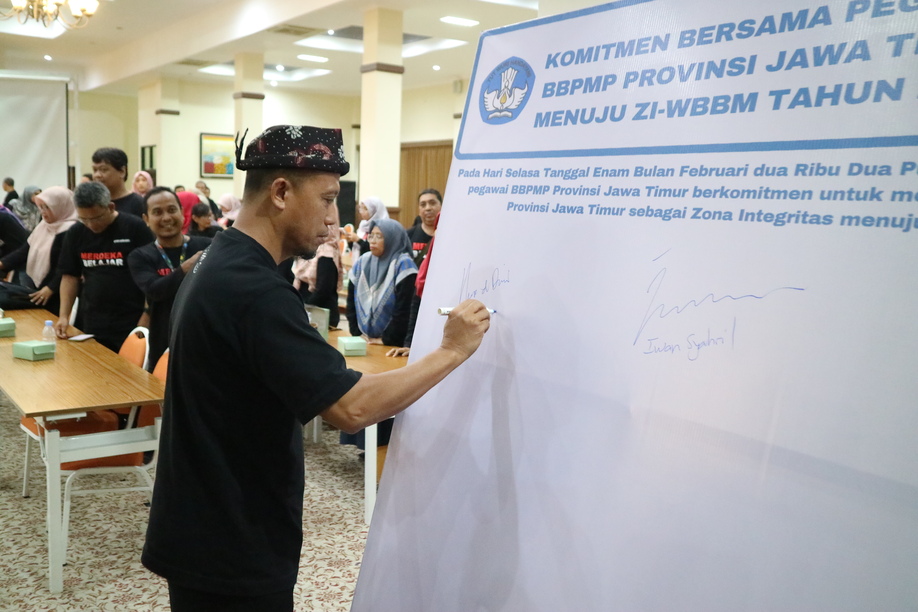 KOMITMEN BERSAMA PEG
BBPMP PROVINSI JAWA T
MENUJU ZI-WBBM TAHUN
Pada Hari Selasa Tanggal Enam Bulan Februari dua Ribu Dua P
pegawai BBPMP Provinsi Jawa Timur berkomitmen untuk m
Provinsi Jawa Timur sebagai Zona Integritas menuju
Iwan Syahril
MERDEKA
BELAJAR